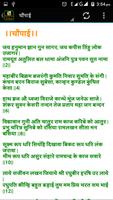 चौंपाई
।।चौंपाई।।
जय हनुमान ज्ञान गुन सागर, जय कपीस तिहुं लोक
उजागर।
रामदूत अतुलित बल धामा अंजनि पुत्र पवन सुत नामा
।|1||
महाबीर बिक्रम बजरंगी कुमति निवार सुमति के संगी।
कंचन बरन बिराज सुबेसा, कान्हन कुण्डल कुंचित
केसा।
।|2||
विद्यावान गुनी अति चातुर राम काज करिबे को आतुर
प्रभु चरित्र सुनिबे को रसिया रामलखन सीता मन
बसिया।
।|3||
सूक्ष्म रूप धरि सियंहि दिखावा बिकट रूप धरि लंक
जरावा
भीम रूप धरि असुर संहारे रामचन्द्र के काज सवारे
।|4||
लाये सजीवन लखन जियाये श्री रघुबीर हरषि उर लाये।
रघुपति कीन्हि बहुत बड़ाई तुम मम प्रिय भरत सम